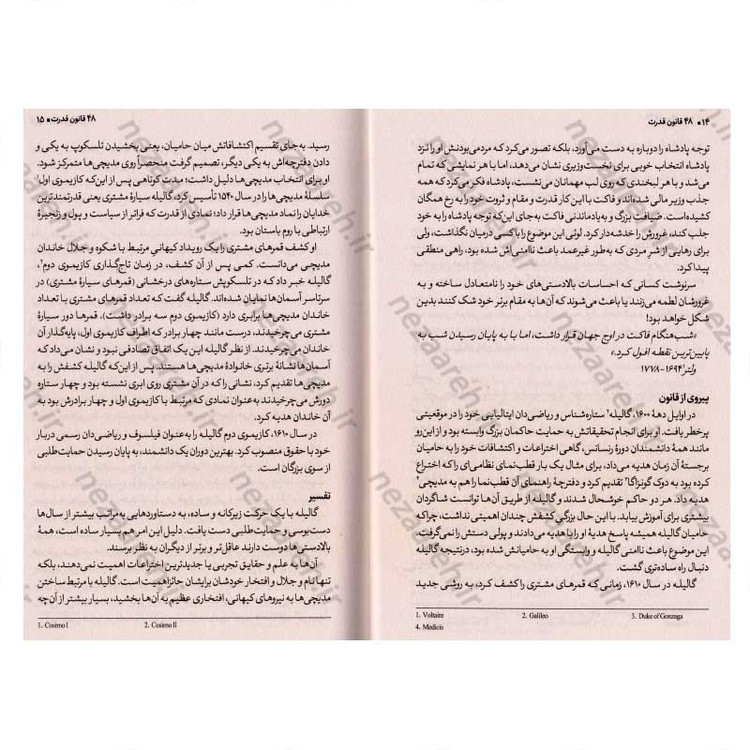 ۱۴ • ۴۸ قانون قدرت
توجه پادشاه را دوباره به دست می‌آورد، بلکه تصور می‌کرد که مردمی‌بودنش او را نزد
پادشاه انتخاب خوبی برای نخست‌وزیری نشان می‌دهد، اما با هر نمایشی که تمام
می‌شد و با هر لبخندی که روی لب مهمانان می‌نشست، پادشاه فکر می‌کرد که همه
جذب وزیر مالی شده‌اند و فاکت با این کار قدرت و مقام و ثروت خود را به رخ همگان
کشیده‌است. ضیافت بزرگ و به‌یادماندنی فاکت به‌جای این‌که توجه پادشاه را به خود
جلب کند، غرورش را خدشه‌دار کرد. لوئی این موضوع را با کسی درمیان نگذاشت، ولی
برای رهایی از شر مردی که به‌طور غیرعمد باعث ناامنی‌اش شده بود، راهی منطقی
پیدا کرد.
سرنوشت کسانی که احساسات بالادستی‌های خود را نامتعادل ساخته و به
غرورشان لطمه می‌زنند یا باعث می‌شوند که آن‌ها به مقام برتر خود شک کنند بدین
شکل خواهد بود!
«شب‌هنگام فاکت در اوج جهان قرار داشت، اما با به پایان رسیدن شب به
پایین‌ترین نقطه افول کرد.»
ولتر۱ ۱۶۹۴-۱۷۷۸
پیروی از قانون
در اوایل دههٔ ۱۶۰۰، گالیله۲ ستاره‌شناس و ریاضی‌دان ایتالیایی خود را در موقعیتی
پرخطر یافت. او برای انجام تحقیقاتش به حمایت حاکمان بزرگ وابسته بود و از این‌رو
مانند همهٔ دانشمندان دورهٔ رنسانس، گاهی اختراعات و اکتشافات خود را به حامیان
برجستهٔ آن زمان هدیه می‌داد، برای مثال یک بار قطب‌نمای نظامی‌ای را که اختراع
کرده بود به دوک گونزاگا۳ تقدیم کرد و دفترچهٔ راهنمای آن قطب‌نما را هم به مدیچی۴
هدیه داد. هر دو حاکم خوشحال شدند و گالیله از طریق آن‌ها توانست شاگردان
بیشتری برای آموزش بیابد. با این حال بزرگی کشفش چندان اهمیتی نداشت، چراکه
حامیان گالیله همیشه پاسخ هدیهٔ او را با هدیه می‌دادند و پولی دستش را نمی‌گرفت.
این موضوع باعث ناامنی گالیله و وابستگی او به حامیانش شده بود، درنتیجه گالیله
دنبال راه ساده‌تری گشت.
گالیله در سال ۱۶۱۰، زمانی که قمرهای مشتری را کشف کرد، به روشی جدید
1. Voltaire 2. Galileo 3. Duke of Gonzaga
4. Medicis
۴۸ قانون قدرت • ۱۵
رسید. به‌جای تقسیم اکتشافاتش میان حامیان، یعنی بخشیدن تلسکوپ به یکی و
دادن دفترچه‌اش به یکی دیگر، تصمیم گرفت منحصراً روی مدیچی‌ها متمرکز شود.
او برای انتخاب مدیچی‌ها دلیل داشت؛ مدت کوتاهی پس از این‌که کازیموی اول۱
سلسلهٔ مدیچی‌ها را در سال ۱۵۴۰ تأسیس کرد، گالیله سیارهٔ مشتری یعنی قدرتمندترین
خدایان را نماد مدیچی‌ها قرار داد؛ نمادی از قدرت که فراتر از سیاست و پول و زنجیرهٔ
ارتباطی با روم باستان بود.
او کشف قمرهای مشتری را یک رویداد کیهانیِ مرتبط با شکوه و جلال خاندان
مدیچی می‌دانست. کمی پس از آن کشف، در زمان تاج‌گذاری کازیموی دوم۲،
گالیله خبر داد که در تلسکوپش ستاره‌های درخشانی (قمرهای سیارهٔ مشتری) در
سرتاسر آسمان‌ها نمایان شده‌اند. گالیله گفت که تعداد قمرهای مشتری با تعداد
خاندان مدیچی‌ها برابری دارد (کازیموی دوم سه برادر داشت). قمرها دور سیارهٔ
مشتری می‌چرخیدند، درست مانند چهار برادر که اطراف کازیموی اول، پایه‌گذار آن
خاندان می‌چرخیدند. از نظر گالیله این یک اتفاق تصادفی نبود و نشان می‌داد که
آسمان‌ها نشانهٔ برتری خانوادهٔ مدیچی‌ها هستند. پس از آن‌که گالیله کشفش را به
مدیچی‌ها تقدیم کرد، نشانی را که در آن مشتری روی ابری نشسته بود و چهار ستاره
دورش می‌چرخیدند به‌عنوان نمادی که مرتبط با کازیموی اول و چهار برادرش بود به
آن خاندان هدیه کرد.
در سال ۱۶۱۰، کازیموی دوم گالیله را به‌عنوان فیلسوف و ریاضی‌دان رسمی دربار
خود با حقوق منصوب کرد. بهترین دوران یک دانشمند، به پایان رسیدن حمایت‌طلبی
از سوی بزرگان است.
تفسیر
گالیله با یک حرکت زیرکانه و ساده، به دستاوردهایی به‌مراتب بیشتر از سال‌ها
دست‌بوسی و حمایت‌طلبی دست یافت. دلیل این امر هم بسیار ساده است، همهٔ
بالادستی‌ها دوست دارند عاقل‌تر و برتر از دیگران به نظر برسند.
آن‌ها به علم و حقایق تجربی یا جدیدترین اختراعات اهمیت نمی‌دهند، بلکه
تنها نام و جلال و افتخار خودشان برایشان حائز اهمیت است. گالیله با مرتبط ساختن
مدیچی‌ها به نیروهای کیهانی، افتخاری عظیم به آن‌ها بخشید، بسیار بیشتر از آن‌چه
1. Cosimo I 2. Cosimo II
nezaareh.ir